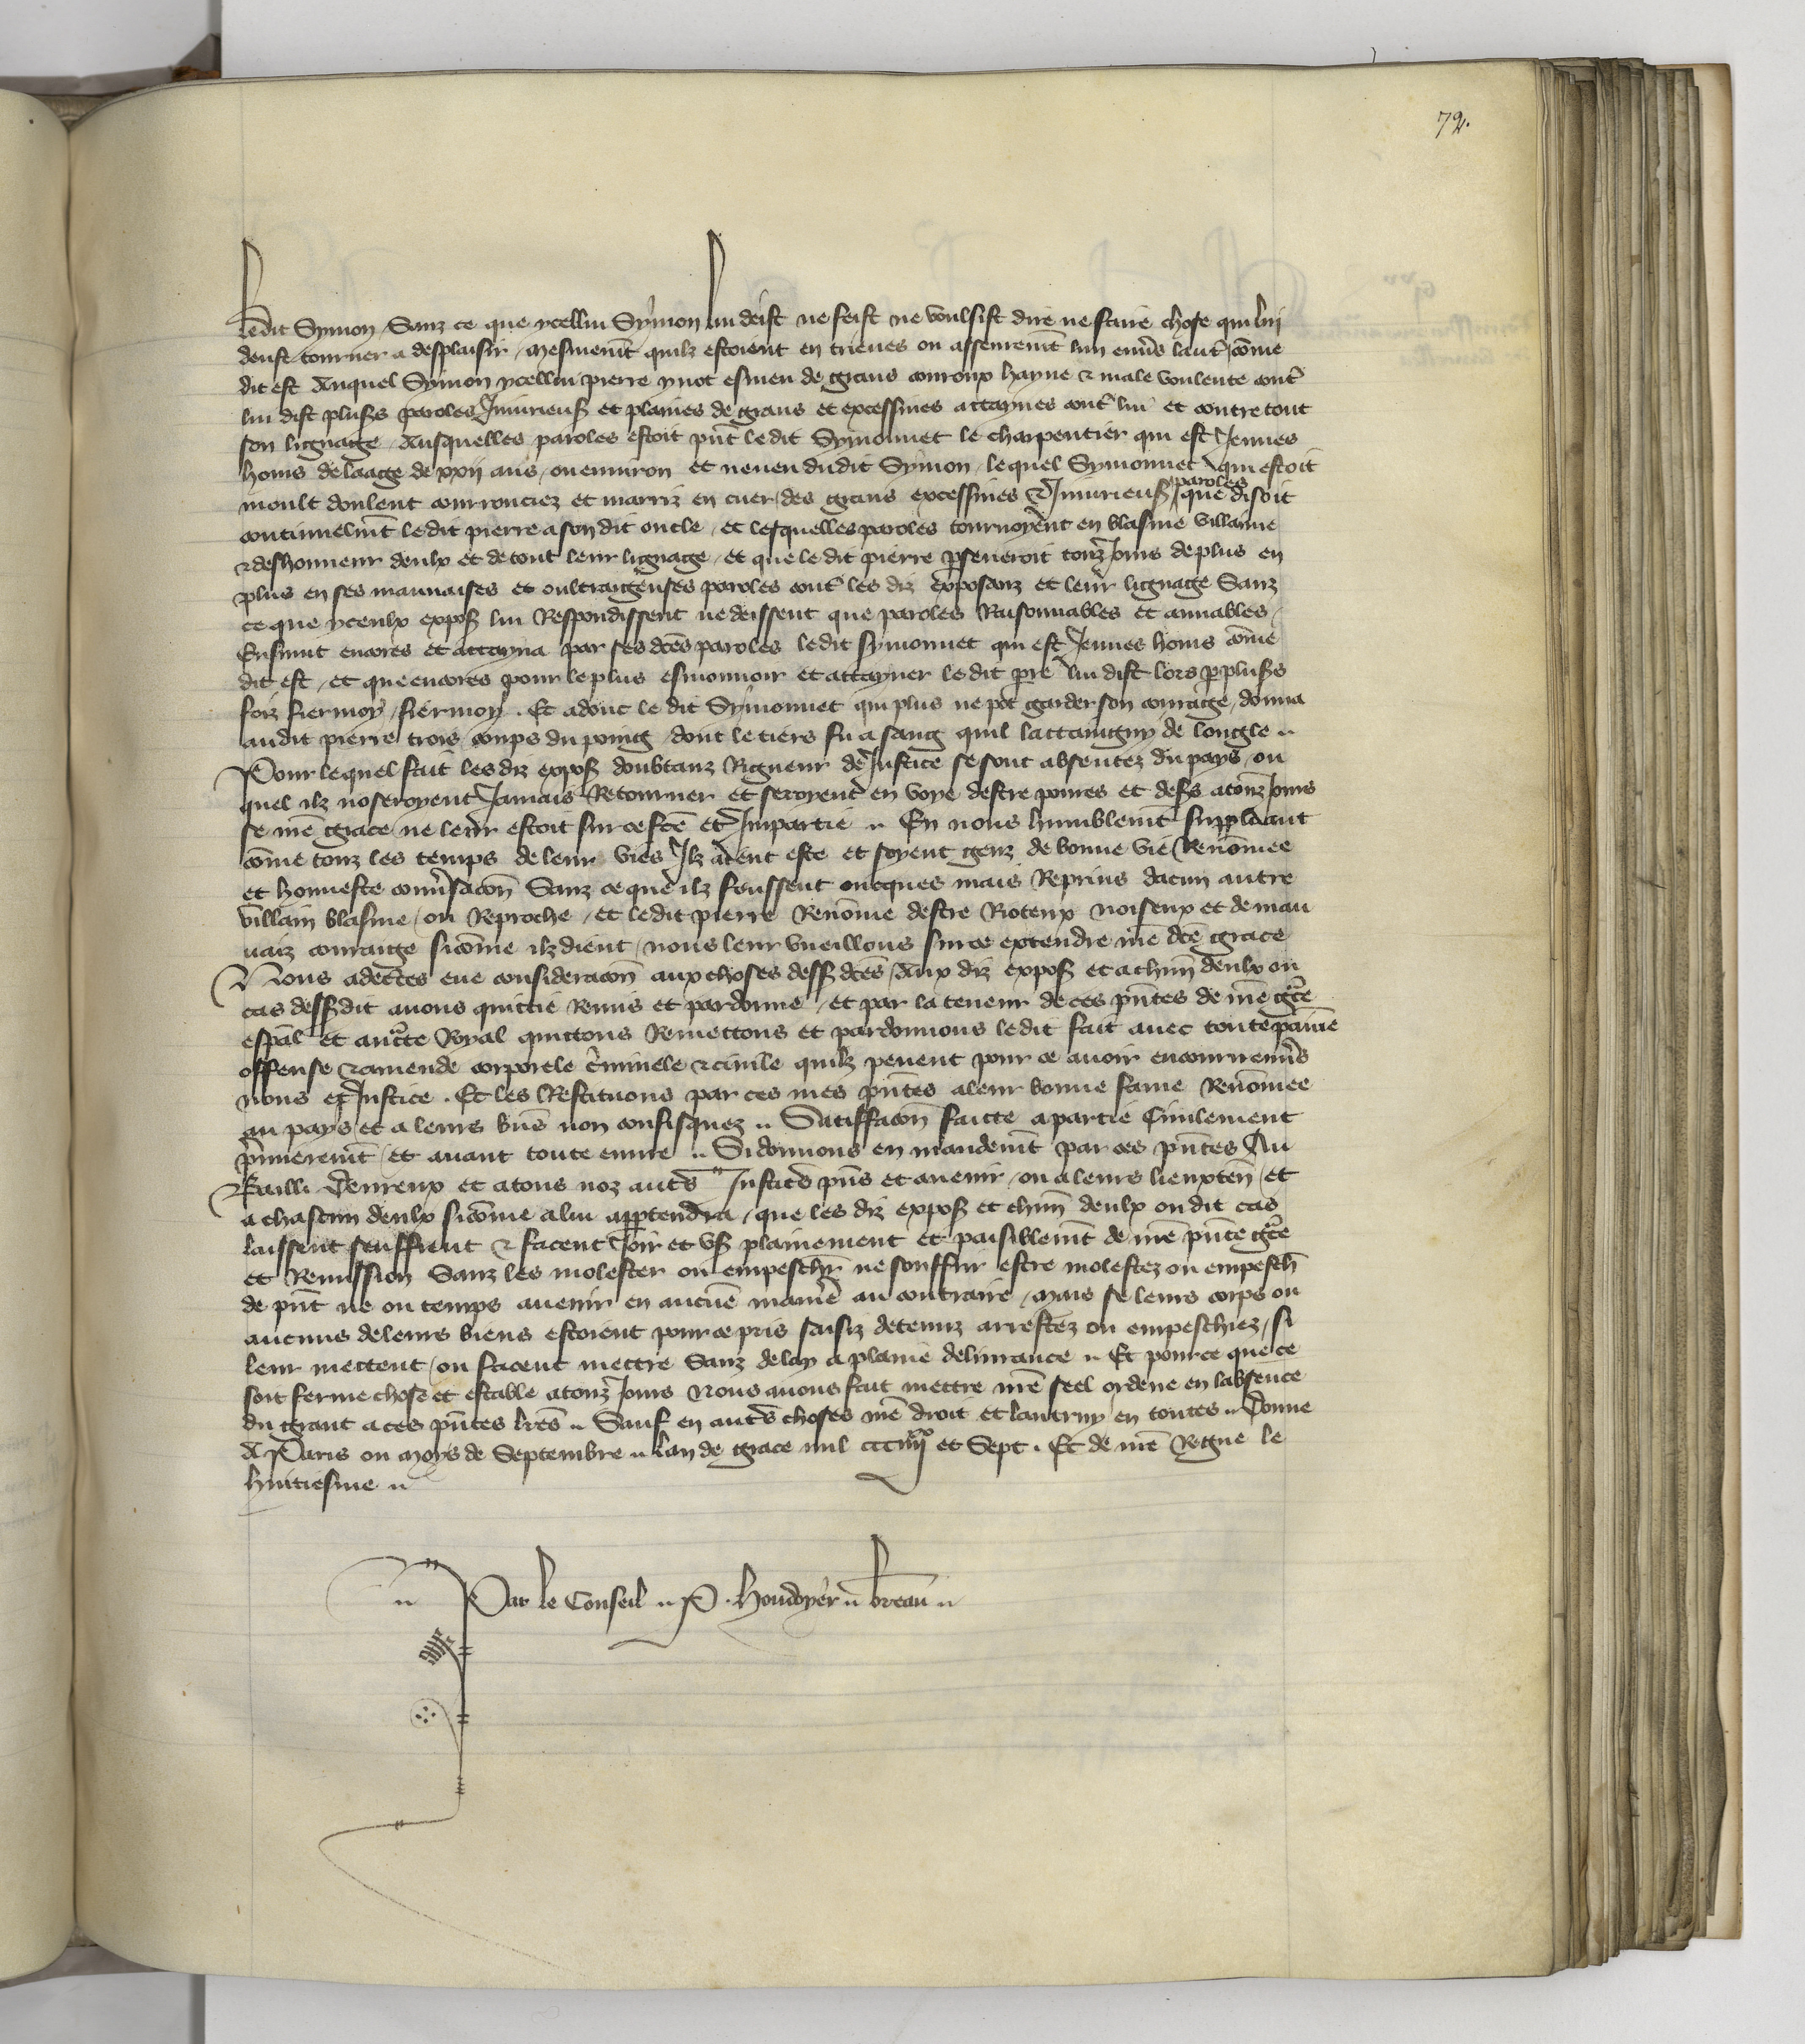 79.
ledit Symon, Sanz ce que ycellui Symon lui deist ne feist ne voulsist dire ne faire chose qui lui
deust tourner a desplaisir, mesmemt quilz estoient en trieues ou asseuremt lun enus laut, come
dit est Auquel Symon ycellui pierre ynot esmeu de grans courroux hayne & male voulente cont
lui dist plus paroles Iniurieus et plaines de grans et excessiues attaynes cont lui et contre tout
son lignage, Ausquelles paroles estoit pnt ledit Symonnet le charpentier qui est Jeunes
homs de laage de xxij ans ou enuiron et neueu dudit Symon, lequel Symonnet qui estoit
moult doulent courrouciez et marriz en cuer des grans excessiues & Iniurieus paroles que disoit
continuelmt ledit pierre a son dit oncle, et lesquelles paroles tournoyent en blasme villainie
& deshonneur deulx et de tout leur lignage, et que ledit pierre pseueroit touz Jours de plus en
plus en ses mauuaises et oultrageuses paroles cont les diz exposanz et leur lignage Sanz
ce que yceulx expos lui Respondissent ne deissent que paroles Raisonnables et amiables,
Ensuiuit encores et attayna par ses dces paroles ledit symonnet qui est Jeunes homs come
dit est, et que encores pour le plus esmouuoir et attayner ledit pre lui dist lors p plus
foiz fiermoy, fiermoy. Et adonc le dit Symonnet qui plus ne pot garder son courage, donna
audit pierre trois coups du poing dont le tiers fu a sang quil lattaingny de longle
Pour lequel fait les diz expos doubtanz Rigueur de Justice se sont absentez du pays, ou
quel ilz noseroyent Jamais Retourner et seroyent en voye destre poures et des a touz Jours
se nre grace ne leur estoit sur ce fce et Impartie En nous humblemt suppliant
come touz les temps de leur vies Ilz aient este et soyent genz de bonne vie Renomee
et honneste conusacon Sanz ce que ilz feussent oncques mais Reprins dacun autre
villain blasme, ou Reproche, et ledit pierre Renome destre Rioteux noiseux et de mau
uaiz courage sicome ilz dient, nous leur vueillons sur ce extendre nre dce grace
Nous adectes eue consideracon aux choses dess dces, Aux diz expos et a chun deulx ou
cas dessdit auons quittie Remis et pardonne, et par la teneur de ces pntes de nre gce
espal et aucte Royal quittons Remettons et pardonnons ledit fait auec toute paine
offense & amende corporele criminele & ciuile quilz peuent pour ce auoir encouru enus
nous et Justice. Et les Restituons par ces mes pntes a leur bonne fame Renomee
au pays et a leurs bns non confisquez Satiffacon faicte a partie Ciuilement
pmieremt et auant toute euure Si donnons en mandemt par ces pntes Au
Bailli Deureux et a tous noz auts Justics pns et auenir, ou a leurs lieuxten et
a chascun deulx sicome a lui apptendra, que les diz expos et chun deulx ou dit cas
laissent seuffrent & facent Joir et vs plainement et paisiblemt de nre pnte gce
et Remission Sanz les molester ou empeschr ne souffrir estre molestez ou empesch
de pnt ne ou temps auenir en aucune manie au contraire, mais se leurs corps ou
aucuns de leurs biens estoient pour ce pris saisiz detenuz arrestez ou empeschiez, si
leur mettent, ou facent mettre Sanz delay a plaine deliurance Et pource que ce
soit ferme chose et estable a touz Jours Nous auons fait mettre nre seel ordene en labsence
du grant a ces pntes lres Sauf en auts choses nre droit et lautruy en toutes Donne
A Paris ou moys de Septembre Lan de grace mil cccIIIIxx et Sept. Et de nre Regne le
huitiesme
Par le Conseil P. Houdoyer breau